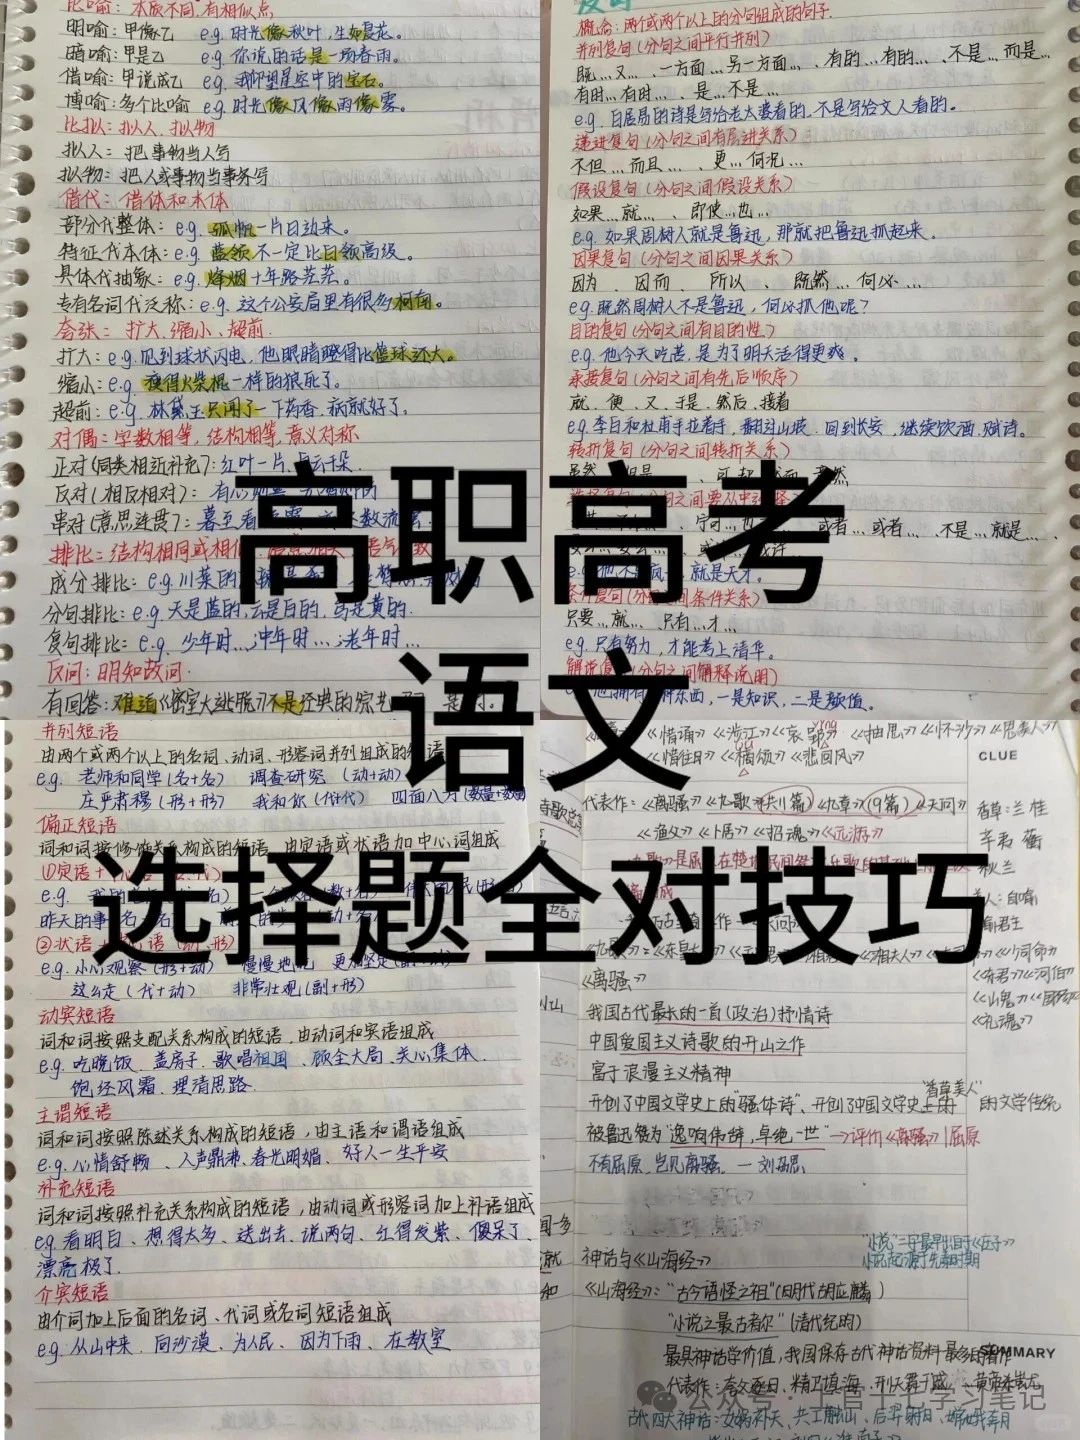 比喻：本质不同,有相似点
明喻：甲像乙 e.g. 时光像秋叶,生如夏花。
暗喻：甲是乙 e.g. 你说的话是一场春雨。
借喻：甲说成乙 e.g. 我仰望星空中的宝石。
博喻：多个比喻 e.g. 时光像风像雨像雾。
比拟：拟人、拟物
拟人：把事物当人写
拟物：把人或事物当事务写
借代：借体和本体
部分代整体：e.g. 孤帆一片日边来。
特征代本体：e.g. 蓝领不一定比白领高级。
具体代抽象：e.g. 烽烟十年路茫茫。
专有名词代泛称：e.g. 这个公安局里有很多柯南。
夸张：扩大、缩小、超前.
扩大：e.g. 见到球状闪电,他眼睛瞪得比篮球还大。
缩小：e.g. 瘦得火柴棍一样的狼死了。
超前：e.g. 林黛玉只闻了一下药香,病就好了。
对偶：字数相等,结构相等,意义对称
正对(同类相近补充)：红叶一片,
反对(相反相对)：
串对(意思连贯)：暮至看
排比：结构相同或相似
成分排比：e.g. 川菜的
分句排比：e.g. 天是蓝的,云是白的,鸟是黄的.
复句排比：e.g. 少年时…;中年时…;老年时…
反问：明知故问.
有回答：难道《密室大逃脱》不是经典的综艺
概念：两个或两个以上的分句组成的句子.
并列复句(分句之间平行并列)
既…又…、一方面…另一方面…、有的…有的…、不是…而是…
有时…有时…、是…不是…
e.g. 白居易的诗是写给老太婆看的,不是写给文人看的。
递进复句(分句之间有层进关系)
不但…而且…、更…何况…
假设复句(分句之间假设关系)
如果…就…、即使…也…
e.g. 如果周树人就是鲁迅,那就把鲁迅抓起来。
因果复句(分句之间因果关系)
因为、因而、所以、既然…何必…
e.g. 既然周树人不是鲁迅,何必抓他呢?
目的复句(分句之间有目的性)
e.g. 他今天吃苦,是为了明天活得更爽。
承接复句(分句之间有先后顺序)
就、便、又、于是、然后、接着
e.g. 李白和杜甫手拉着手,翻过山坡,回到长安,继续饮酒,赋诗。
转折复句(分句之间转折关系)
或者…或者…、不是…就是…、
就是天才。
条件复句(分句之间条件关系)
只要…就…、只有…才…
e.g. 只有努力,才能考上清华。
解说复句(分句之间解释说明)
一是知识,二是颜值。
高职高考
语文
选择题全对技巧
并列短语
由两个或两个以上的名词、动词、形容词并列组成的短语
e.g. 老师和同学(名+名) 调查研究(动+动)
庄严肃穆(形+形) 我和你(代+代) 四面八方(数量+数量)
偏正短语
词和词按修饰关系构成的短语,由定语或状语加中心词组成
①定语+
昨天的事
②状语+
e.g. 小心观察(形+动) 慢慢地
这么走(代+动) 非常壮观(副+形)
动宾短语
词和词按照支配关系构成的短语,由动词和宾语组成
e.g. 吃晚饭、盖房子、歌唱祖国、顾全大局、关心集体、
饱经风霜、理清思路.
主谓短语
词和词按照陈述关系构成的短语,由主语和谓语组成
e.g. 心情舒畅、人声鼎沸、春光明媚、好人一生平安
补充短语
词和词按照补充关系构成的短语,由动词或形容词加上补语组成
e.g. 看明白、想得太多、送出去、说两句、红得发紫、傻呆了、
漂亮极了.
介宾短语
由介词加上后面的名词、代词或名词短语组成
e.g. 从山中来、向沙漠、为人民、因为下雨、在教室
《惜诵》《涉江》《哀郢》《抽思》《怀沙》《思美人》
《惜往日》《橘颂》《悲回风》
代表作：《离骚》《九歌》(共11篇)《九章》(9篇)《天问》
《渔父》《卜居》《招魂》《远游》
CLUE
香草：兰 桂
秋兰
《少司命》
《东君》《河伯》
《山鬼》《国殇》
《礼魂》
《离骚》
我国古代最长的一首(政治)抒情诗
中国爱国主义诗歌的开山之作
富于浪漫主义精神
开创了中国文学史上的"骚体诗"、开创了中国文学史上的"香草美人"的文学传统
被鲁迅誉为"逸响伟辞,卓绝一世"→评价《离骚》|屈原
不有屈原,岂见离骚。—刘勰
神话与《山海经》
"小说"二字最早出自于《庄子》
小说起源于先秦时期
《山海经》："古今语怪之祖"(明代胡应麟)
"小说之最古者尔"(清代纪昀)
SUMMARY
最具神话学价值,我国保存古代神话资料最多的著作
代表作：夸父逐日、精卫填海、刑天舞干戚、黄帝杀蚩尤
公众号·上官十七学习笔记
古代四大神话：女娲补天、共工触山、后羿射日、嫦娥奔月